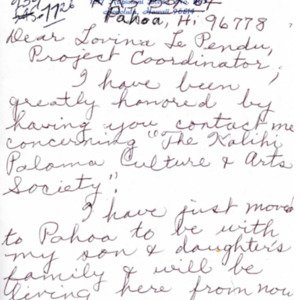 Pahoa, Hi. 96778
Dear Lovina Le Pendu,
Project Coordinator;
I have been
greatly honored by
having you contact me
concerning "The Kalihi
Palama Culture & Arts
Society".
I have just moved
to Pahoa to be with
my son & daughter's
family & will be
living here from now